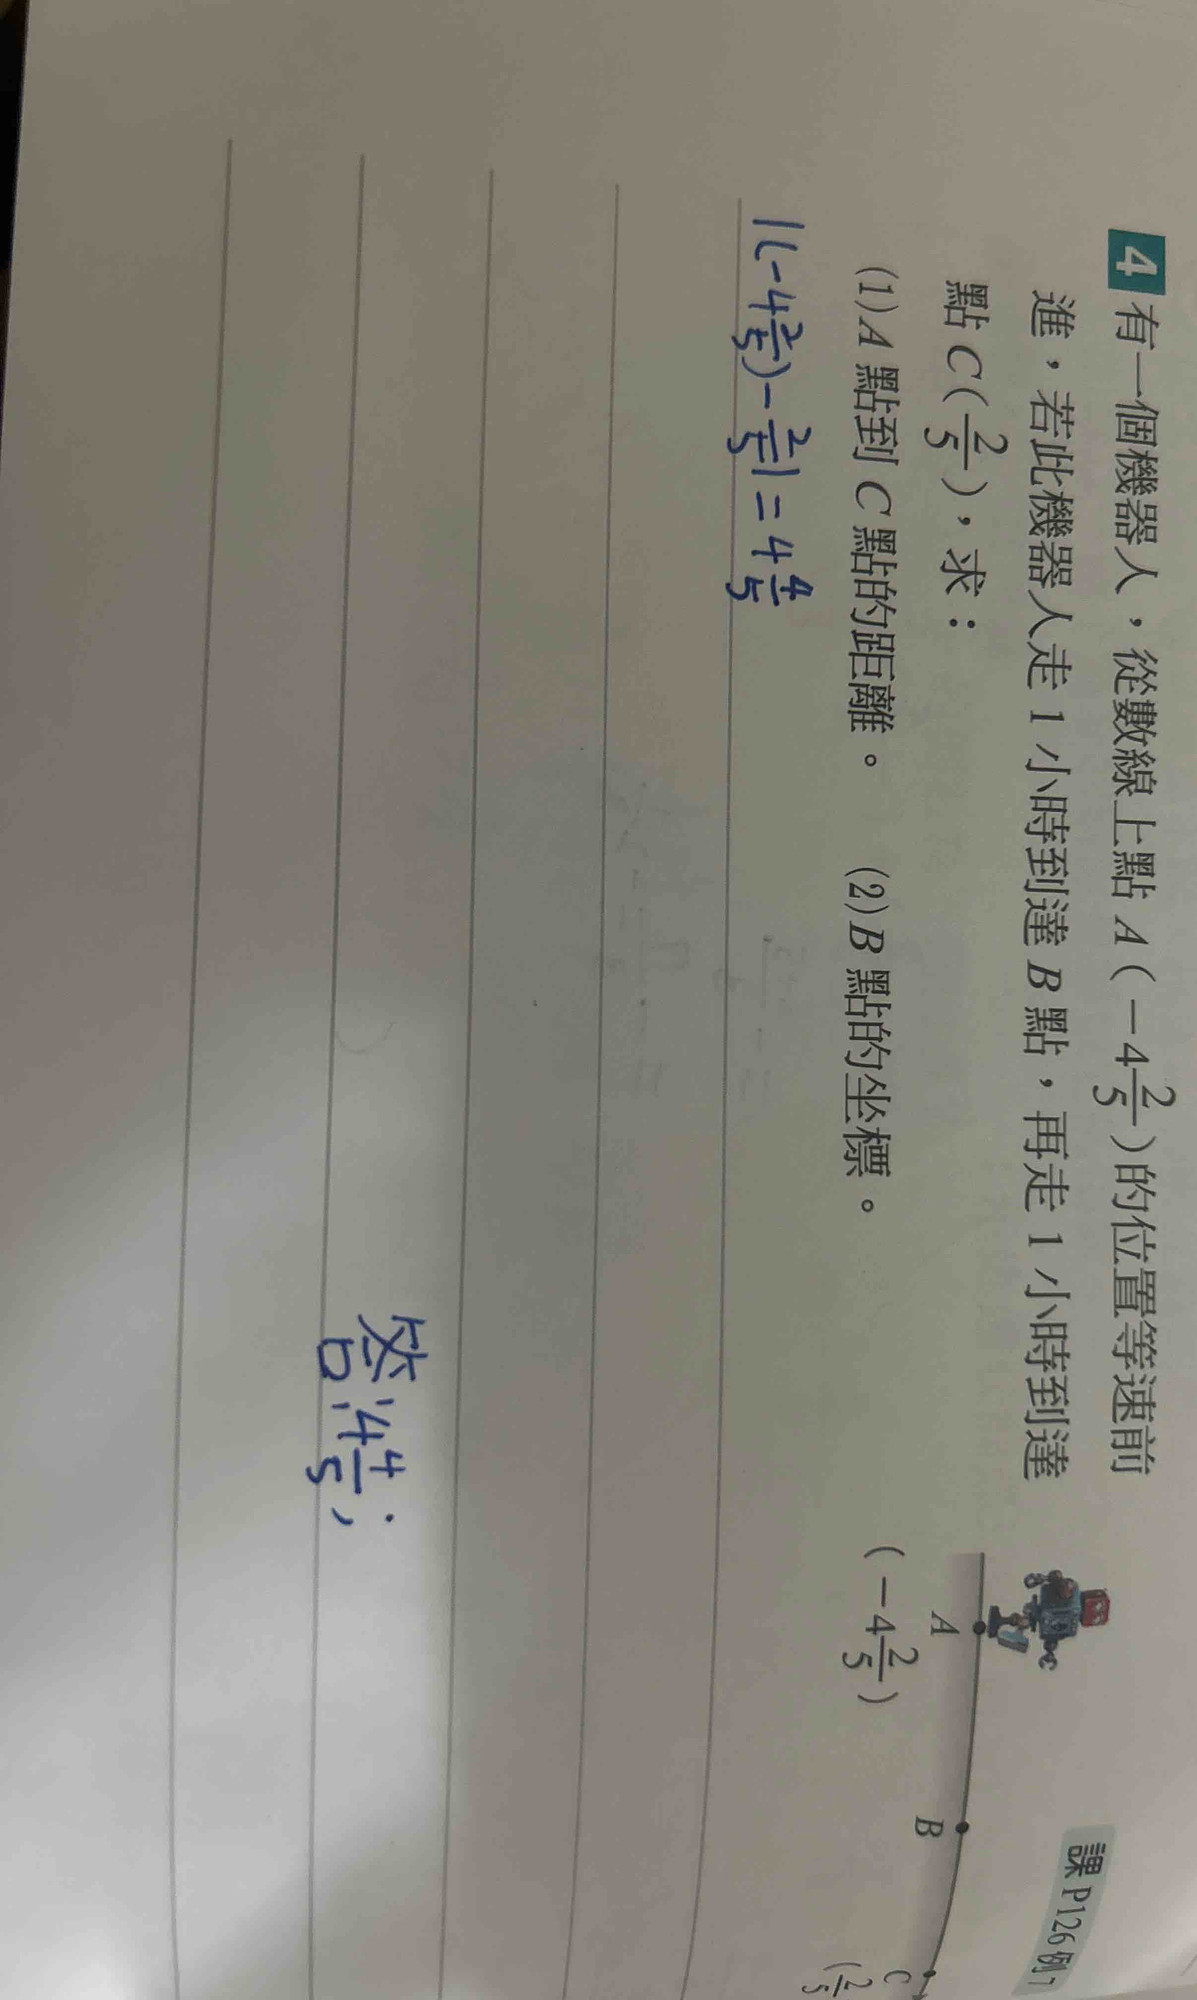 課 P126 例7
4 有一個機器人，從數線上點 A（－4 2/5）的位置等速前
進，若此機器人走 1 小時到達 B 點，再走 1 小時到達
點 C（2/5），求：
A B C
（－4 2/5） （2/5
(1) A 點到 C 點的距離。 (2) B 點的坐標。
|(-4 2/5) - 2/5| = 4 4/5
答：4 4/5；